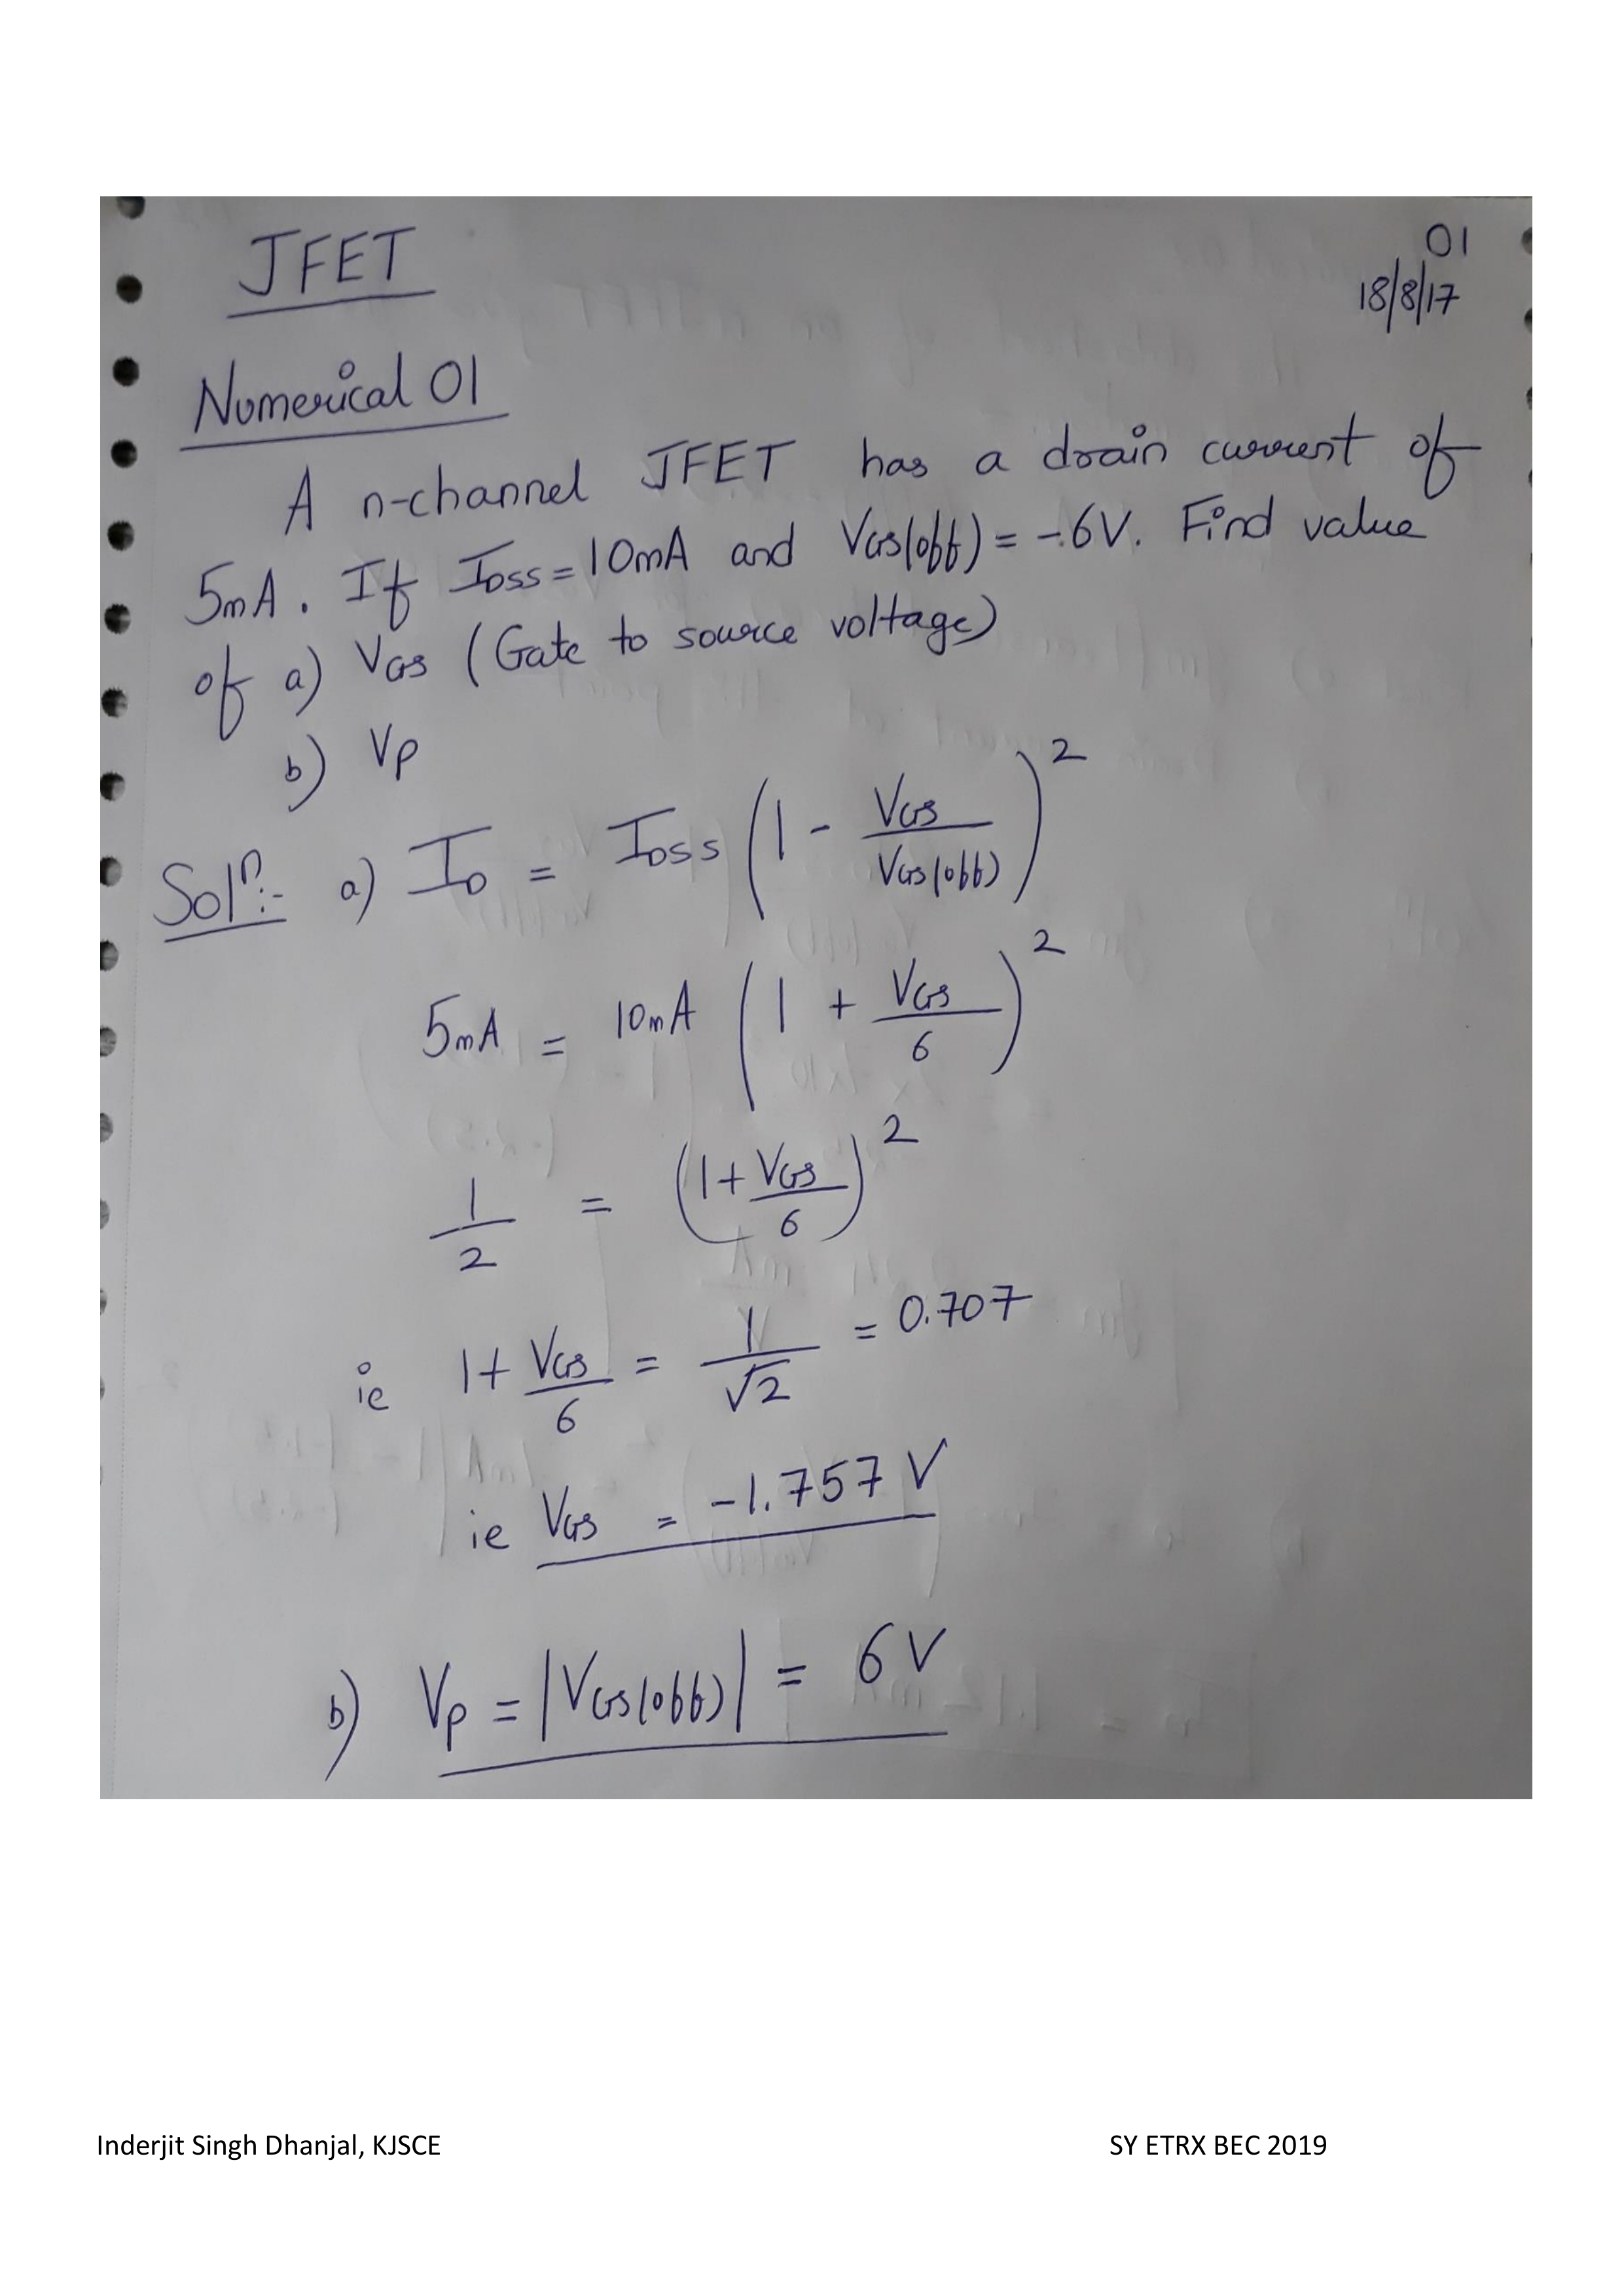 JFET
01
18/8/17
Numerical 01
A n-channel JFET has a drain current of
5mA. If IDSS = 10mA and VGS(off) = -6V. Find value
of a) VGS (Gate to source voltage)
b) VP
Solⁿ:- a) ID = IDSS (1 - VGS/VGS(off))²
5mA = 10mA (1 + VGS/6)²
1/2 = (1 + VGS/6)²
ie 1 + VGS/6 = 1/√2 = 0.707
ie VGS = -1.757 V
b) VP = |VGS(off)| = 6V
Inderjit Singh Dhanjal, KJSCE
SY ETRX BEC 2019